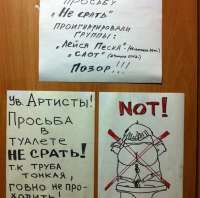 ПРОСЬБУ
„НЕ СРАТЬ"
ПРОИГНОРИРОВАЛИ
ГРУППЫ:
„ЛЕЙСЯ ПЕСНЯ"
„СЛОТ"
ПОЗОР!!!
УВ. АРТИСТЫ!
ПРОСЬБА
В
ТУАЛЕТЕ
НЕ СРАТЬ!
Т.К ТРУБА
ТОНКАЯ,
ГОВНО НЕ ПРО-
ХОДИТЬ!
NOT!